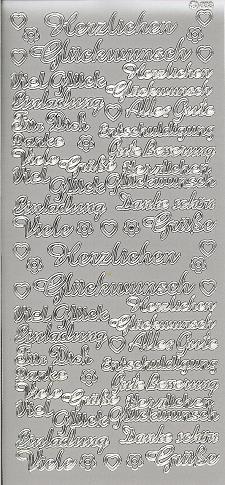 Herzlichen
Glückwunsch
Viel Glück Herzlichen
Glückwunsch
Einladung Alles Gute
Für Dich Entschuldigung
Danke Gute Besserung
Viele Grüße Herzlichen
Viel Glück Glückwunsch
Einladung Danke schön
Viele Grüße
Herzlichen
Glückwunsch
Viel Glück Herzlichen
Glückwunsch
Einladung Alles Gute
Für Dich Entschuldigung
Danke Gute Besserung
Viele Grüße Herzlichen
Viel Glück Glückwunsch
Einladung Danke schön
Viele Grüße